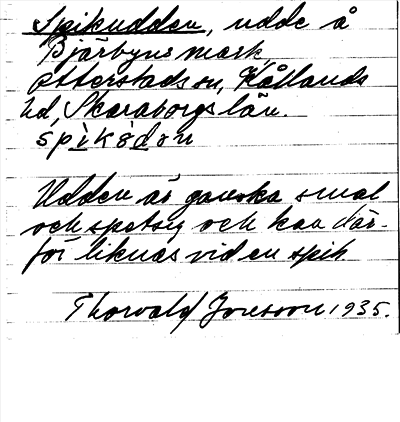 Spikudden, udde å
Bjärbyns mark,
Otterstads sn, Kållands
hd, Skaraborgs län.
spikødən
Udden är ganska smal
och spetsig och kan där-
för liknas vid en spik
Thorvald Jonsson 1935.